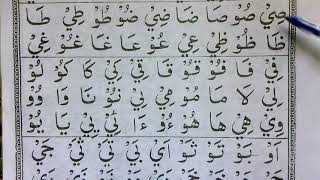 صِيْ صُوْ صَا ضَا ضِيْ ضُوْ طُوْ طِيْ طَا
ظَا ظُوْ ظِيْ عِيْ عُوْ عَا غَا غُوْ غِيْ
فِيْ فَا فُوْ قُوْ قَا قِيْ كِيْ كَا كُوْ لُوْ
لِيْ لَا مَا مُوْ مِيْ نِيْ نُوْ نَا وَا وُوْ
وِيْ هِيْ هَا هُوْ ءُوْ ءَا ئِيْ يِيْ يَا يُوْ
اَوْ بَوْ تَوْ ثَوْ اَيْ بَيْ تَيْ ثَيْ جَيْ